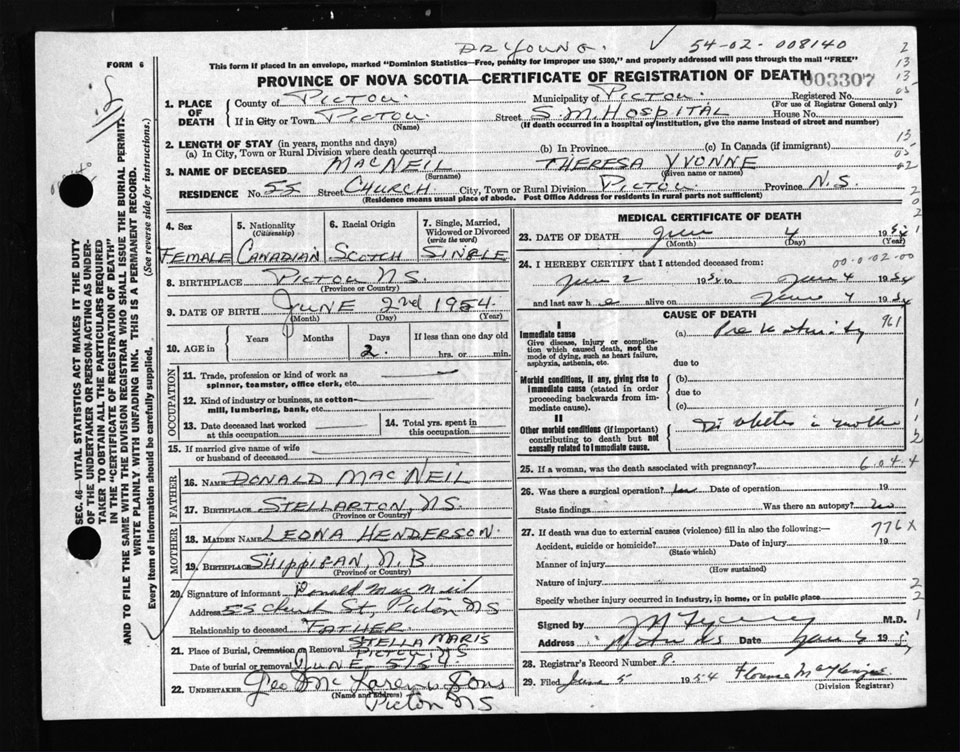 DR YOUNG. V 54-02-008140
FORM 6
This form if placed in an envelope, marked "Dominion Statistics—Free, penalty for improper use $300," and properly addressed will pass through the mail "FREE"
PROVINCE OF NOVA SCOTIA—CERTIFICATE OF REGISTRATION OF DEATH 003307
1. PLACE OF DEATH County of PICTOU. Municipality of PICTOU. Registered No.
(For use of Registrar General only)
If in City or Town PICTOU. Street S.M. HOSPITAL House No.
(Name) (If death occurred in a hospital or institution, give the name instead of street and number)
2. LENGTH OF STAY (in years, months and days)
(a) In City, Town or Rural Division where death occurred (b) In Province (c) In Canada (if immigrant)
3. NAME OF DECEASED MACNEIL THERESA YVONNE
(Surname) (Given name or names)
RESIDENCE No. 55 Street CHURCH. City, Town or Rural Division PICTOU Province N.S.
(Residence means usual place of abode. Post Office Address for residents in rural parts not sufficient)
4. Sex 5. Nationality (Citizenship) 6. Racial Origin 7. Single, Married, Widowed or Divorced (write the word)
FEMALE CANADIAN SCOTCH SINGLE
8. BIRTHPLACE PICTOU N.S.
(Province or Country)
9. DATE OF BIRTH JUNE 2nd 1954.
(Month) (Day) (Year)
10. AGE in Years Months Days If less than one day old
2. hrs. or min.
OCCUPATION
11. Trade, profession or kind of work as spinner, teamster, office clerk, etc.
12. Kind of industry or business, as cotton-mill, lumbering, bank, etc.
13. Date deceased last worked at this occupation
14. Total yrs. spent in this occupation
15. If married give name of wife or husband of deceased
FATHER
16. NAME DONALD MACNEIL
17. BIRTHPLACE STELLARTON, N.S.
(Province or Country)
MOTHER
18. MAIDEN NAME LEONA HENDERSON.
19. BIRTHPLACE SHIPPIGAN, N.B
(Province or Country)
20. Signature of informant Donald MacNeil
Address 55 Church St, Pictou NS
Relationship to deceased FATHER.
21. Place of Burial, Cremation or Removal STELLA MARIS PICTOU, NS
Date of burial or removal JUNE 5/54.
22. UNDERTAKER Geo McLaren & Sons
(Name and address)
Pictou NS
MEDICAL CERTIFICATE OF DEATH
23. DATE OF DEATH June 4 1954
(Month) (Day) (Year)
24. I HEREBY CERTIFY that I attended deceased from: 00-0-02-00
June 2 1954 June 4 1954
and last saw h e alive on June 4 1954
CAUSE OF DEATH
I
Immediate cause (a) Prematurity 961
Give disease, injury or complication which caused death, not the mode of dying, such as heart failure, asphyxia, asthenia, etc.
due to
Morbid conditions, if any, giving rise to immediate cause (stated in order proceeding backwards from immediate cause).
(b)
due to
(c)
II
Other morbid conditions (if important) contributing to death but not causally related to immediate cause.
Diabetes in mother
25. If a woman, was the death associated with pregnancy? 6044
26. Was there a surgical operation? no Date of operation 19
State findings Was there an autopsy? no
27. If death was due to external causes (violence) fill in also the following:— 776X
Accident, suicide or homicide? Date of injury 19
(State which)
Manner of injury
(How sustained)
Nature of injury
Specify whether injury occurred in industry, in home, or in public place
Signed by M.D.
Address Pictou NS Date June 4 195
28. Registrar's Record Number 9.
29. Filed June 5 1954 Florence MacKenzie
(Division Registrar)
SEC. 46—VITAL STATISTICS ACT MAKES IT THE DUTY
OF THE UNDERTAKER OR PERSON ACTING AS UNDERTAKER TO OBTAIN ALL THE PARTICULARS REQUIRED
IN THE "CERTIFICATE OF REGISTRATION OF DEATH"
AND TO FILE THE SAME WITH THE DIVISION REGISTRAR WHO SHALL ISSUE THE BURIAL PERMIT.
WRITE PLAINLY WITH UNFADING INK. THIS IS A PERMANENT RECORD.
Every item of information should be carefully supplied. (See reverse side for instructions.)